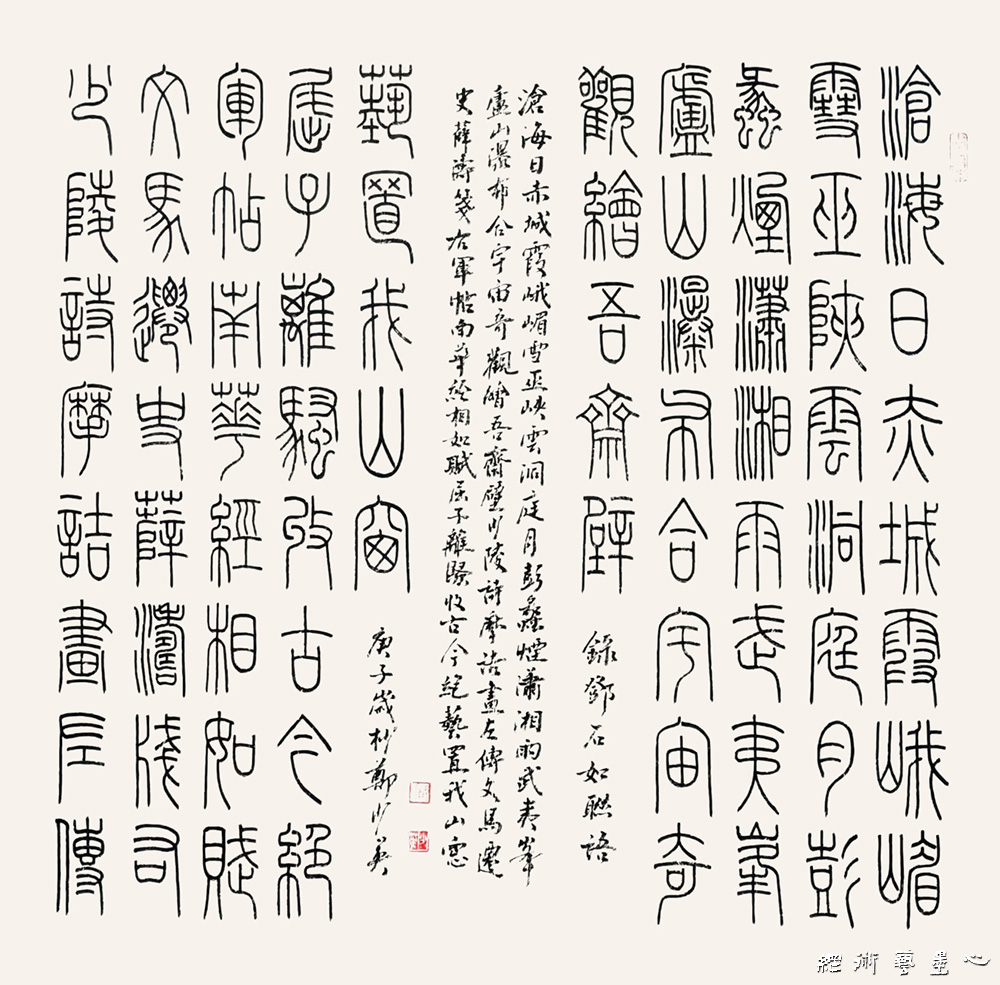 滄海日赤城霞峨嵋
雪巫陝雲洞庭月彭
蠡煙瀟湘雨武夷峯
廬山瀑布合宇宙奇
觀繪吾齋壁
錄鄧石如聯語
少陵詩摩詰畫左傳
文馬遷史薛濤淺右
軍帖南華經相如賦
屈子離騷收古今絕
藝置我山窗
滄海日赤城霞峨嵋雪巫峽雲洞庭月彭蠡煙瀟湘雨武夷峯
廬山瀑布合宇宙奇觀繪吾齋壁少陵詩摩詰畫左傳文馬遷
史薛濤箋右軍帖南華經相如賦屈子離騷收古今絕藝置我山窗
庚子歲杪鄭少英
心墨藝術